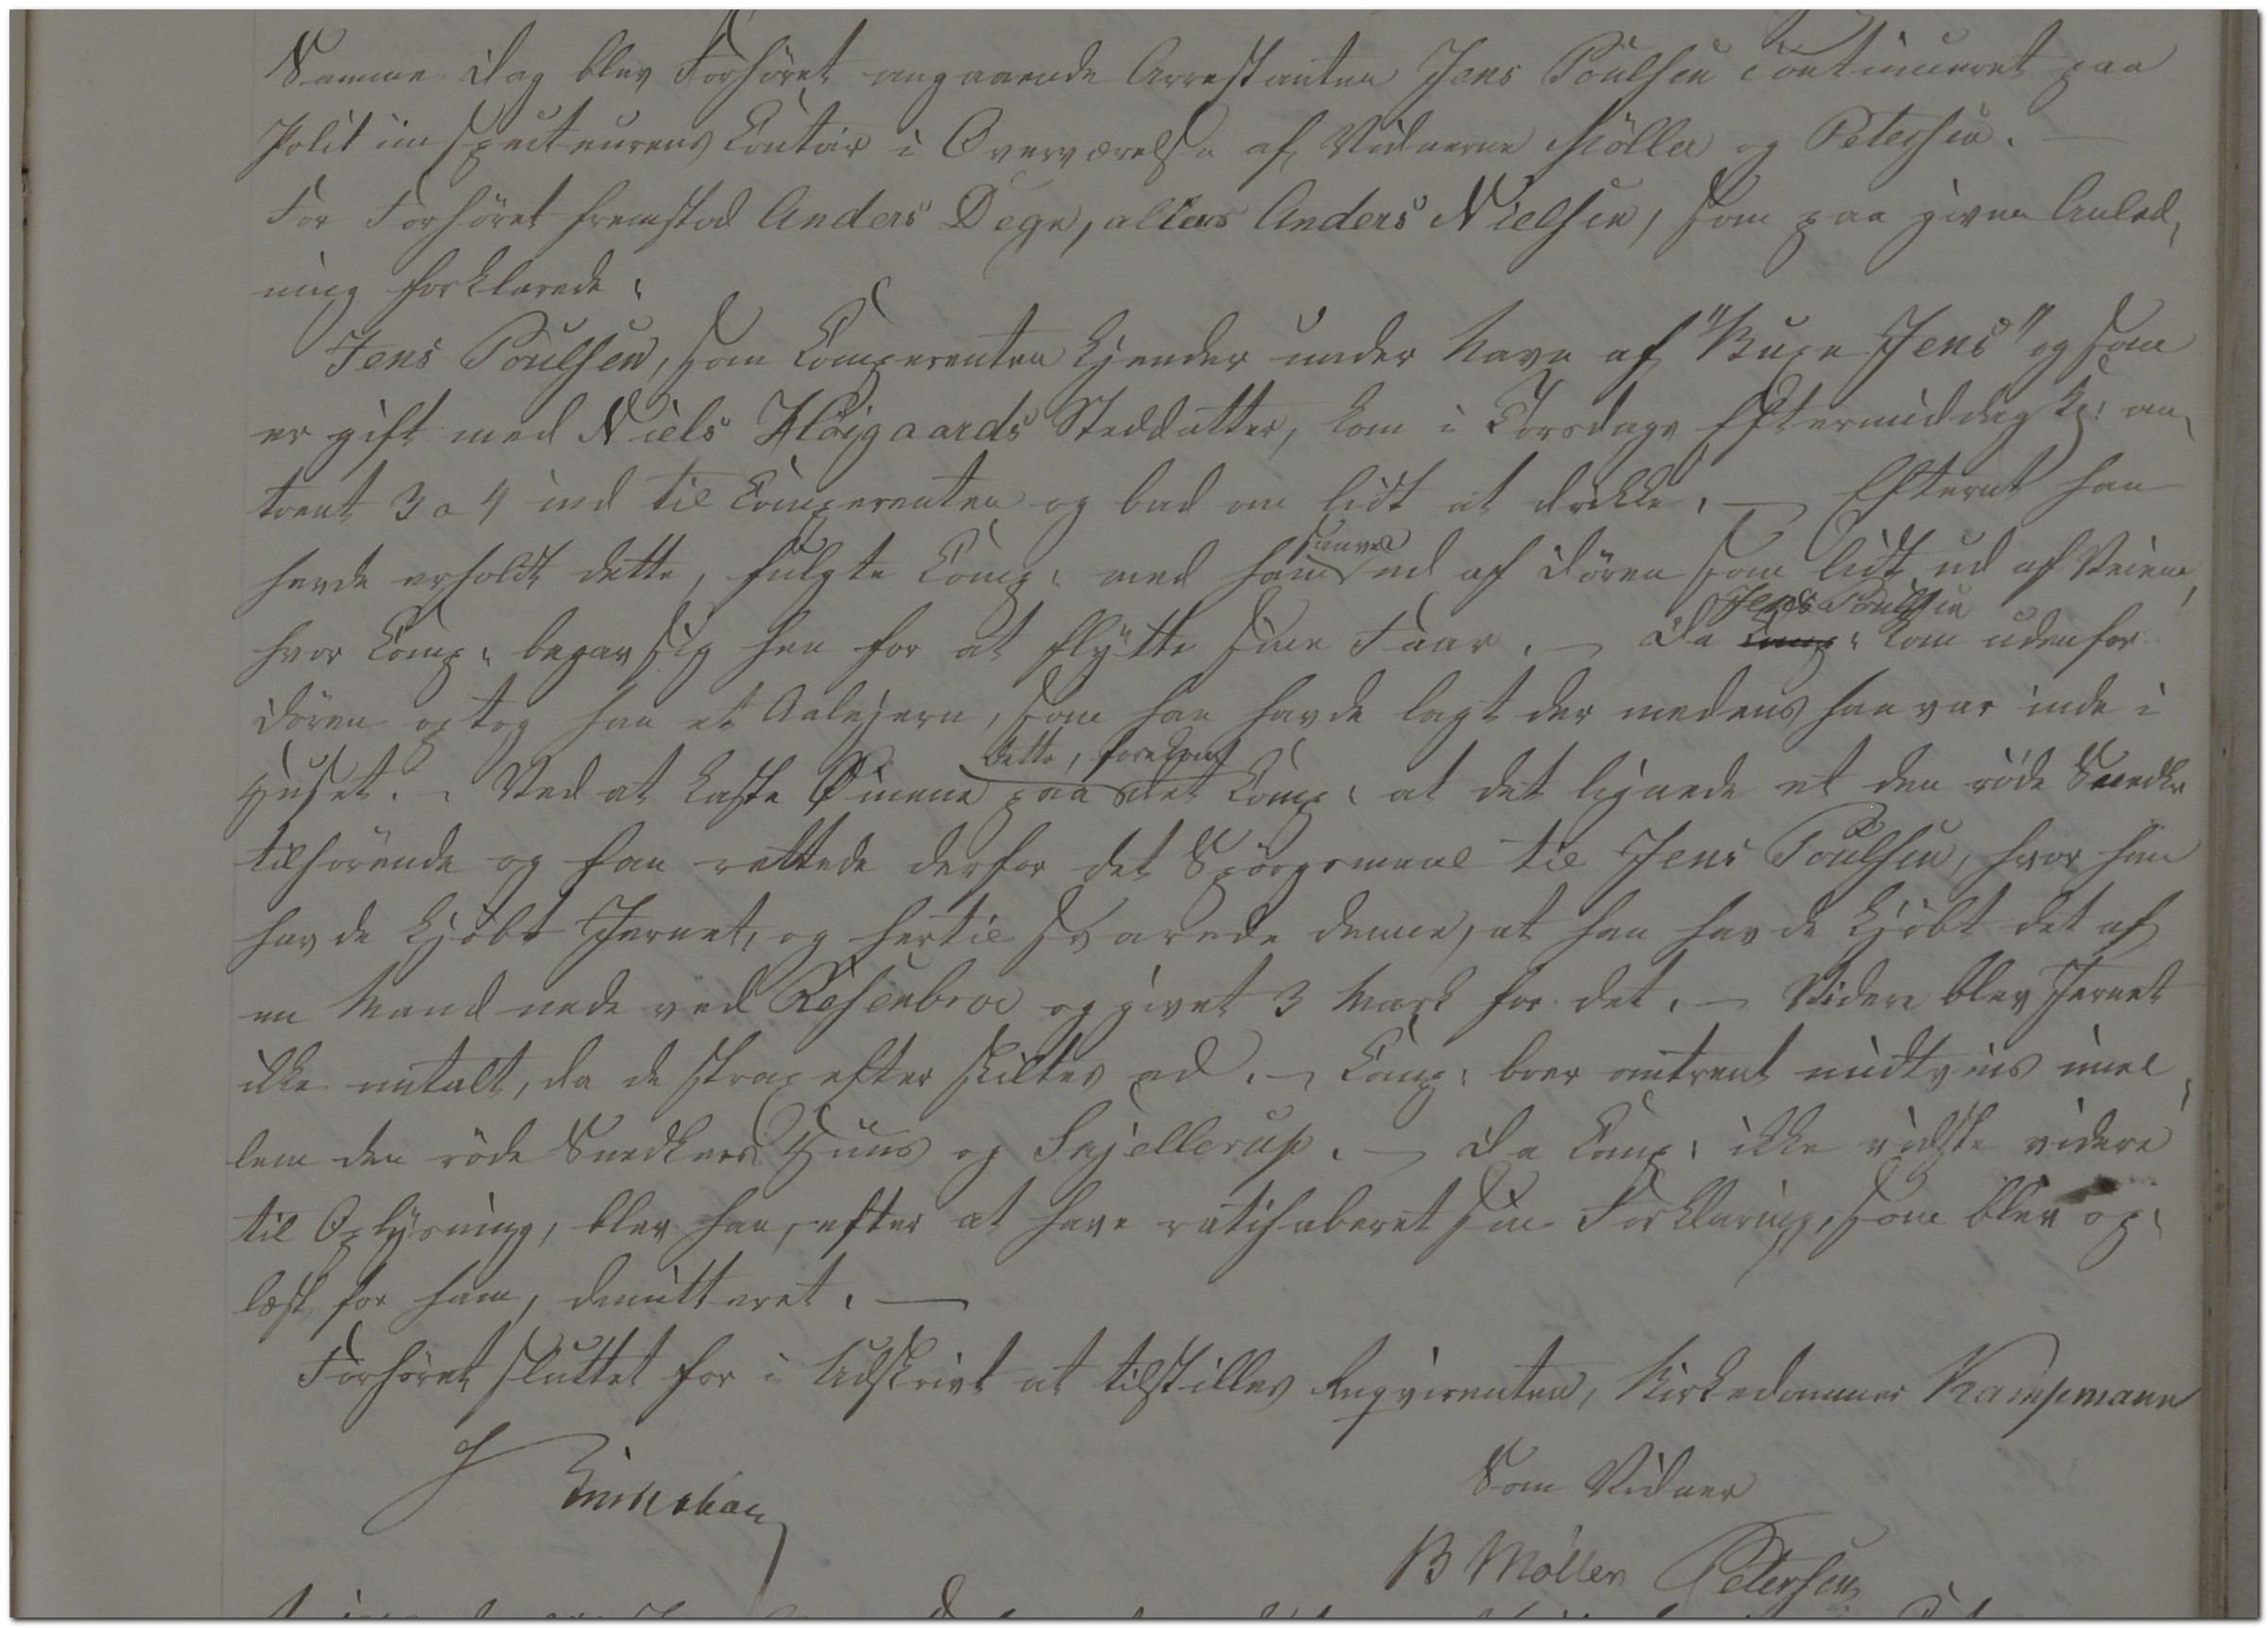 Samme Dag blev Forhöret angaaende Arrestanten Jens Poulsen continueret paa
Politiinspecteurens Contoir i Overværelse af Vidnerne Möller og Petersen. —
For Forhöret fremstod Anders Degn, alias Anders Nielsen, som paa given Anled-
ning forklarede:
Jens Poulsen, som Comparenten kjender under Navn af "Buxe Jens" og som
er gift med Niels Höigaards Steddatter, kom i Torsdags Eftermiddag Kl: om-
trent 3 a 4 ind til Comparenten og bad om lidt at drikke. — Efterat han
havde erholdt dette, fulgte Comp: med ham saavel ud af Dören som lidt ud af Veien,
hvor Comp: begav sig hen for at flytte sine Faar. — Da Jens Poulsen kom udenfor
Dören optog han et Aalejern, som han havde lagt der medens han var inde i
Huset. — Ved at kaste Öinene paa dette, forekom det Comp: at det lignede et den röde Snedker
tilhörende og han rettede derfor det Spörgsmaal til Jens Poulsen, hvor han
havde kjöbt Jernet, og hertil svarede denne, at han havde kjöbt det af
en Mand nede ved Rosenbroe og givet 3 Mark for det. — Videre blev Jernet
ikke omtalt, da de strax efter skiltes ad. — Comp: boer omtrent midtveis imel-
lem den röde Snedkers Huus og Sejellerup. — Da Comp: ikke vidste videre
til Oplysning, blev han, efter at have ratihaberet sin Forklaring, som blev op-
læst for ham, demitteret. —
Forhöret sluttet for i Udskrivt at tilstilles Reqvirenten, Birkedommer Kampmann
Som Vidner
B Möller Petersen